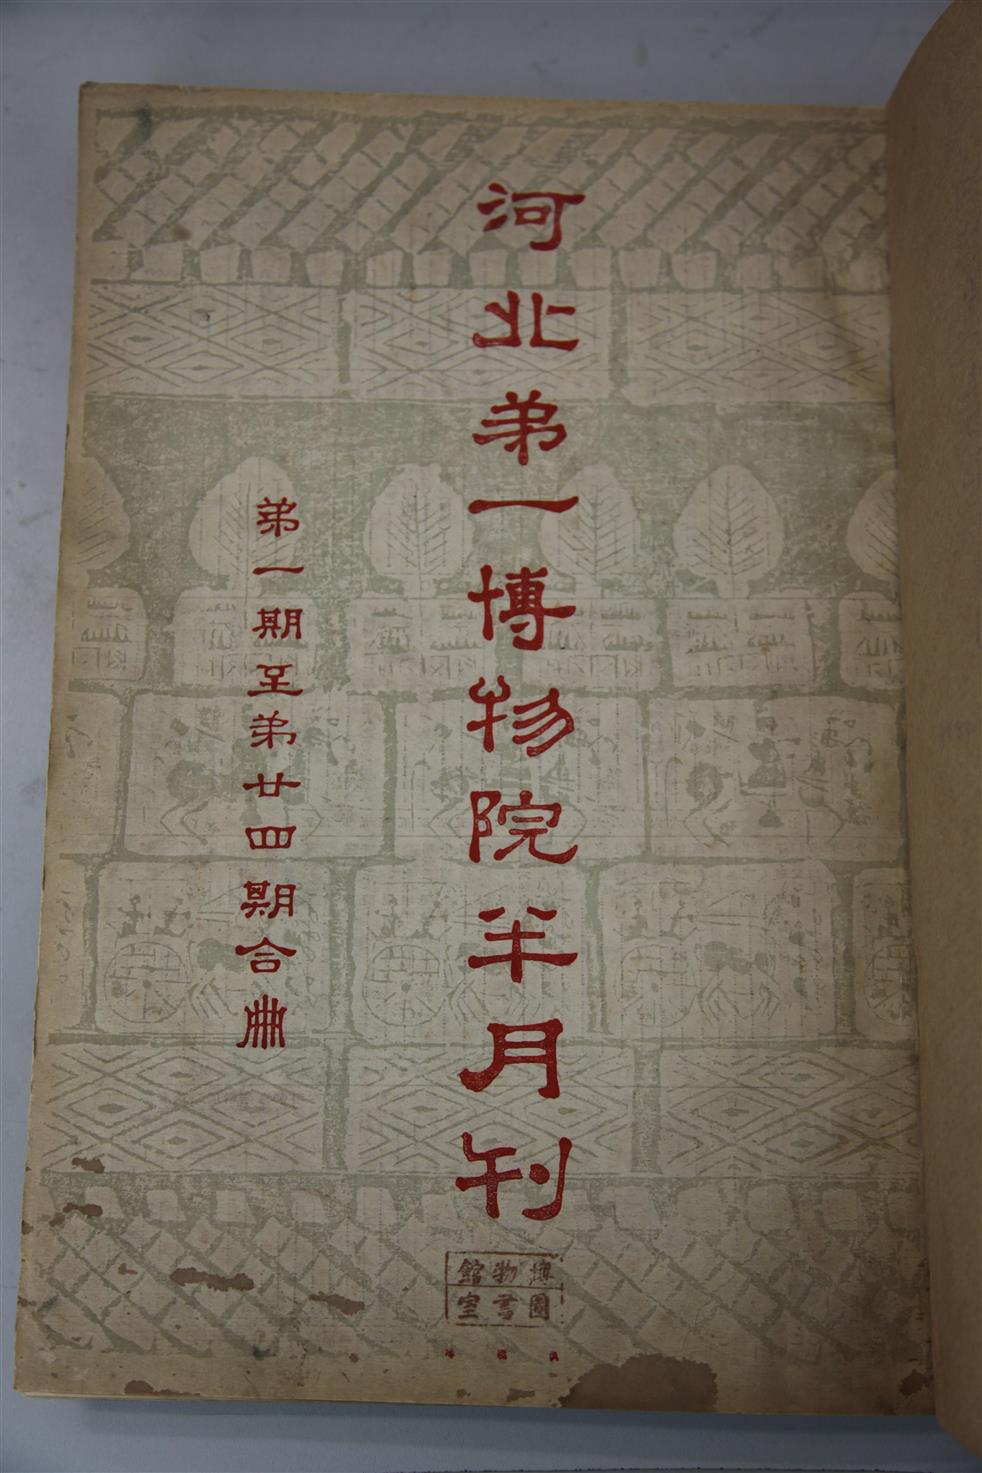 河北弟一博物院半月刊
弟一期至弟廿四期合冊
博物館
圖書室